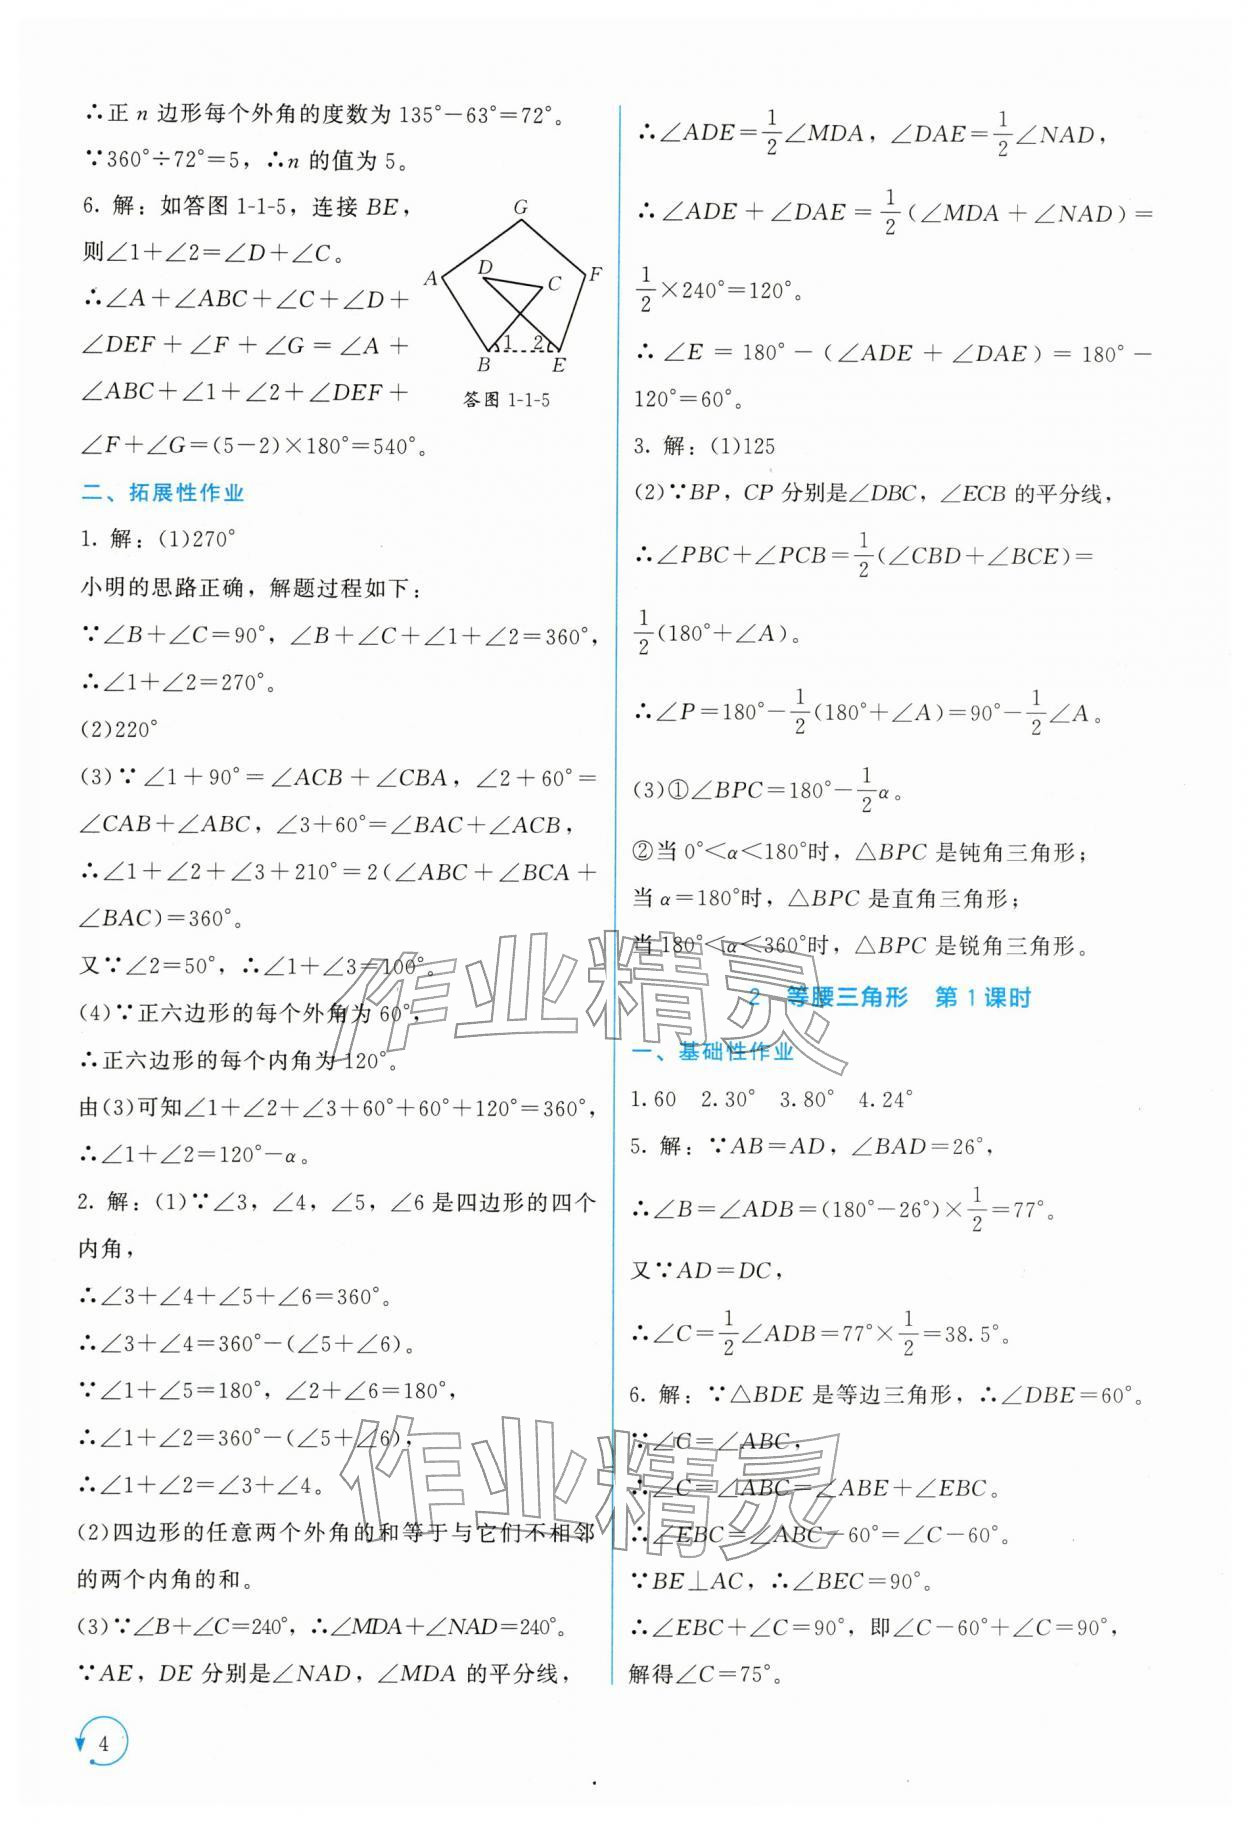 ∴正 n 边形每个外角的度数为 135°－63°＝72°。
∵360°÷72°＝5，∴n 的值为 5。
6. 解：如答图 1-1-5，连接 BE，
则∠1＋∠2＝∠D＋∠C。
∴∠A＋∠ABC＋∠C＋∠D＋
∠DEF＋∠F＋∠G＝∠A＋
∠ABC＋∠1＋∠2＋∠DEF＋
∠F＋∠G＝(5－2)×180°＝540°。
G
A
D
C
F
1 2
B
E
答图 1-1-5
二、拓展性作业
1. 解：(1)270°
小明的思路正确，解题过程如下：
∵∠B＋∠C＝90°，∠B＋∠C＋∠1＋∠2＝360°，
∴∠1＋∠2＝270°。
(2)220°
(3)∵∠1＋90°＝∠ACB＋∠CBA，∠2＋60°＝
∠CAB＋∠ABC，∠3＋60°＝∠BAC＋∠ACB，
∴∠1＋∠2＋∠3＋210°＝2(∠ABC＋∠BCA＋
∠BAC)＝360°。
又∵∠2＝50°，∴∠1＋∠3＝100°。
(4)∵正六边形的每个外角为 60°，
∴正六边形的每个内角为 120°。
由(3)可知∠1＋∠2＋∠3＋60°＋60°＋120°＝360°，
∴∠1＋∠2＝120°－α。
2. 解：(1)∵∠3，∠4，∠5，∠6 是四边形的四个
内角，
∴∠3＋∠4＋∠5＋∠6＝360°。
∴∠3＋∠4＝360°－(∠5＋∠6)。
∵∠1＋∠5＝180°，∠2＋∠6＝180°，
∴∠1＋∠2＝360°－(∠5＋∠6)，
∴∠1＋∠2＝∠3＋∠4。
(2)四边形的任意两个外角的和等于与它们不相邻
的两个内角的和。
(3)∵∠B＋∠C＝240°，∴∠MDA＋∠NAD＝240°。
∵AE，DE 分别是∠NAD，∠MDA 的平分线，
∴∠ADE＝1/2∠MDA，∠DAE＝1/2∠NAD，
∴∠ADE＋∠DAE＝1/2(∠MDA＋∠NAD)＝
1/2×240°＝120°。
∴∠E＝180°－(∠ADE＋∠DAE)＝180°－
120°＝60°。
3. 解：(1)125
(2)∵BP，CP 分别是∠DBC，∠ECB 的平分线，
∴∠PBC＋∠PCB＝1/2(∠CBD＋∠BCE)＝
1/2(180°＋∠A)。
∴∠P＝180°－1/2(180°＋∠A)＝90°－1/2∠A。
(3)①∠BPC＝180°－1/2α。
②当 0°＜α＜180°时，△BPC 是钝角三角形；
当 α＝180°时，△BPC 是直角三角形；
当 180°＜α＜360°时，△BPC 是锐角三角形。
2 等腰三角形 第 1 课时
一、基础性作业
1.60 2.30° 3.80° 4.24°
5. 解：∵AB＝AD，∠BAD＝26°，
∴∠B＝∠ADB＝(180°－26°)×1/2＝77°。
又∵AD＝DC，
∴∠C＝1/2∠ADB＝77°×1/2＝38.5°。
6. 解：∵△BDE 是等边三角形，∴∠DBE＝60°。
∵∠C＝∠ABC，
∴∠C＝∠ABC＝∠ABE＋∠EBC。
∴∠EBC＝∠ABC－60°＝∠C－60°。
∵BE⊥AC，∴∠BEC＝90°。
∴∠EBC＋∠C＝90°，即∠C－60°＋∠C＝90°，
解得∠C＝75°。
作业精灵
作业精灵
4